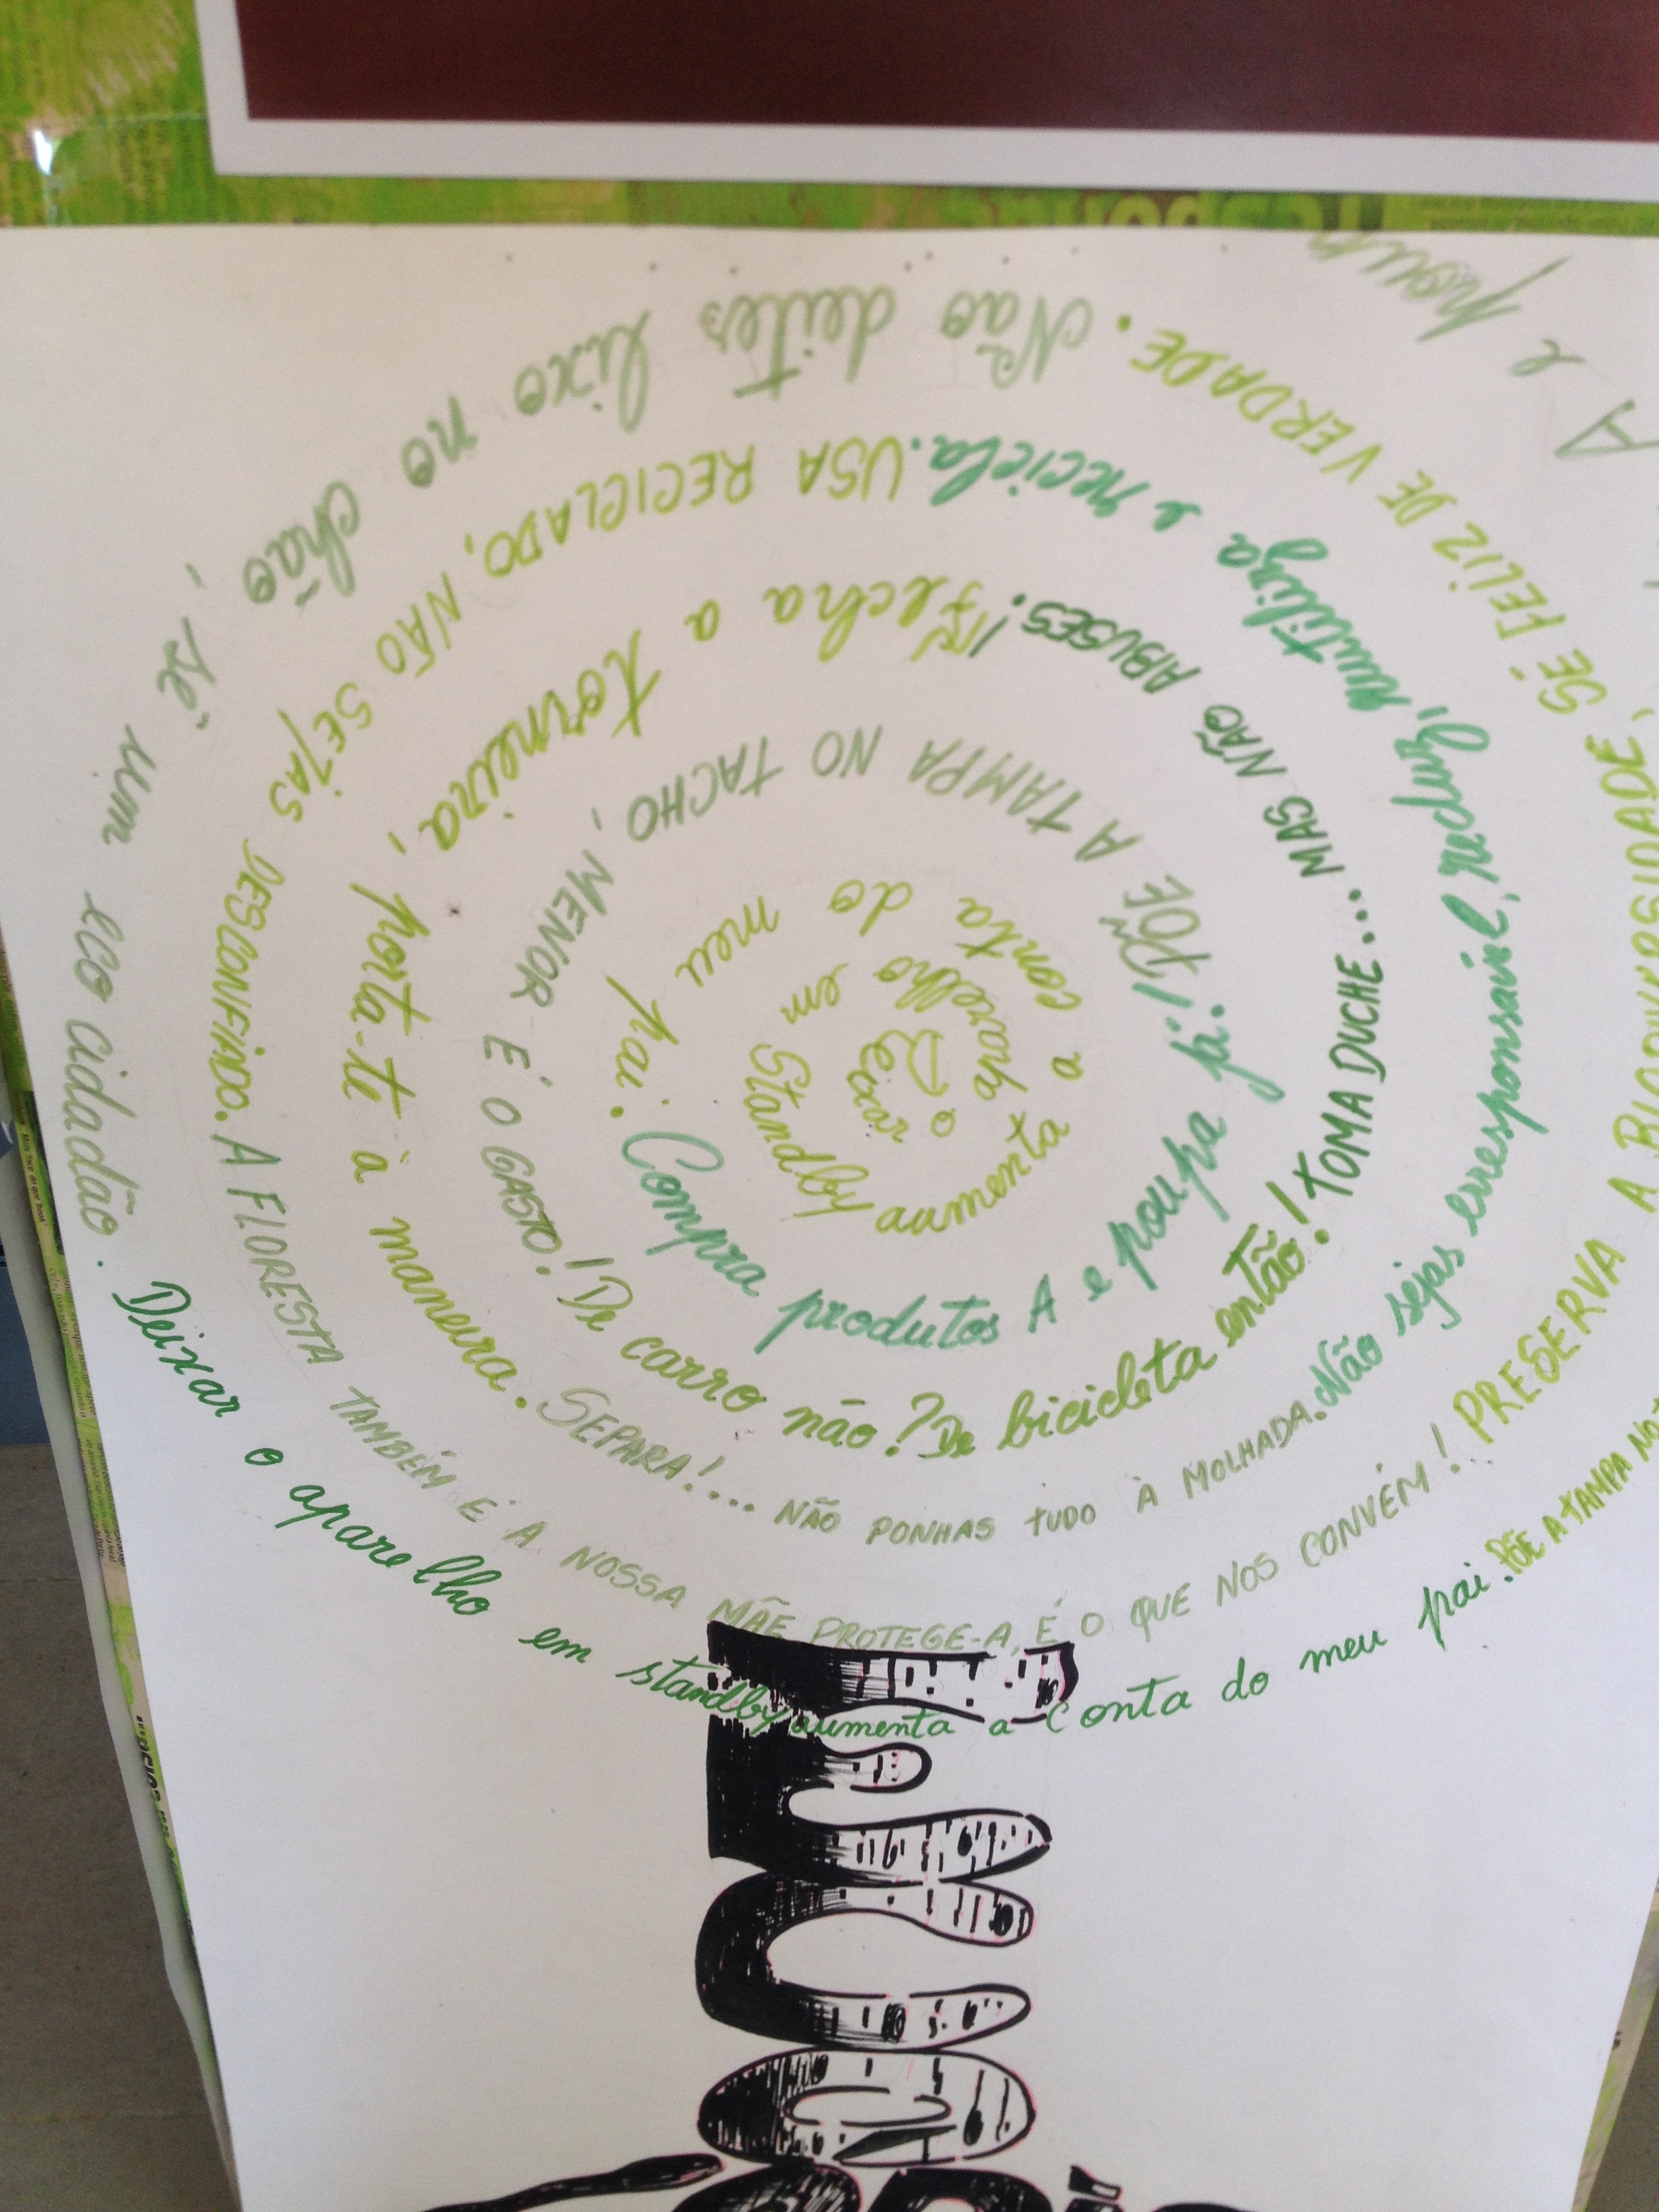 Deixar o aparelho em Standby aumenta a conta do meu pai.
Compra produtos A e poupa já!
PÕE A TAMPA NO TACHO, MENOR É O GASTO!
De carro não? De bicicleta então!
TOMA DUCHE... MAS NÃO ABUSES!
Fecha a torneira, porta-te à maneira.
SEPARA!... NÃO PONHAS TUDO À MOLHADA.
Não sejas irresponsável, reduz, reutiliza e recicla.
USA RECICLADO, NÃO SEJAS DESCONFIADO.
A FLORESTA TAMBÉM É A NOSSA MÃE PROTEGE-A, É O QUE NOS CONVÉM!...
PRESERVA A BIODIVERSIDADE, SÊ FELIZ DE VERDADE.
Não deites lixo no chão, sê um eco cidadão.
Deixar o aparelho em standby aumenta a conta do meu pai.
PÕE A TAMPA NO
A e